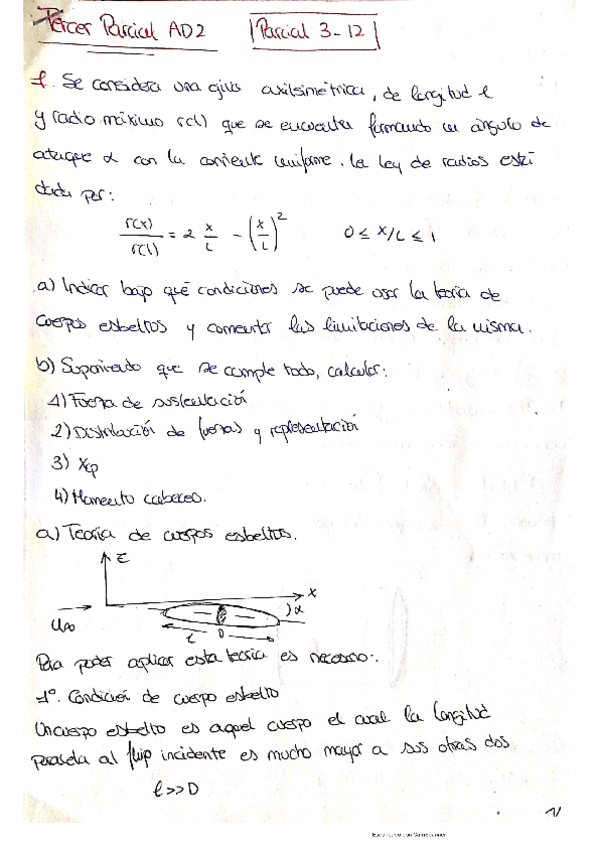 Tercer Parcial AD2
Parcial 3-12
1. Se considera una ojiva axilsimétrica, de longitud l
y radio máximo r(l) que se encuentra formando un ángulo de
ataque α con la corriente uniforme. La ley de radios está
dada por:
r(x)/r(l) = 2 x/L - (x/L)^2    0 ≤ x/L ≤ 1
a) Indicar bajo qué condiciones se puede usar la teoría de
cuerpos esbeltos y comentar las limitaciones de la misma.
b) Suponiendo que se cumple todo, calcular:
1) Fuerza de sustentación
2) Distribución de fuerzas y representación
3) Xcp
4) Momento cabeceo.
a) Teoría de cuerpos esbeltos.
z
x
α
U∞
l
D
Para poder aplicar esta teoría es necesario:
1º. Condición de cuerpo esbelto
Un cuerpo esbelto es aquel cuerpo el cual la longitud
paralela al flujo incidente es mucho mayor a sus otras dos
l>>D
1/
Escaneado con CamScanner